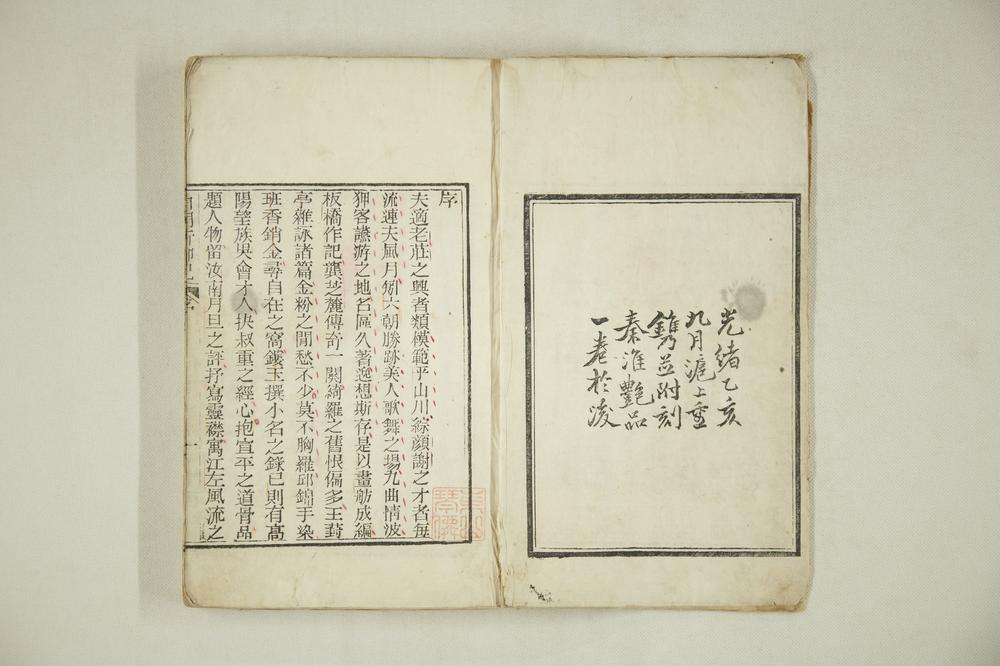 光緒乙亥
九月滬上重
鐫並附刻
秦淮艷品
一卷於後
序
夫適老莊之興者類模範乎山川綜顏謝之才者每
流連夫風月矧六朝勝跡美人歌舞之場九曲情波
狎客讌游之地名區久著逸想斯存是以畫舫成編
板橋作記龔芝麓傳奇一闋綺羅之舊恨偏多王葑
亭雜詠諸篇金粉之閒愁不少莫不胸羅邱錦手染
班香銷金尋自在之窩鏤玉撰小名之錄已則有高
陽望族吳會才人抉叔重之經心抱宣平之道骨品
題人物留汝南月旦之評抒寫靈襟寓江左風流之